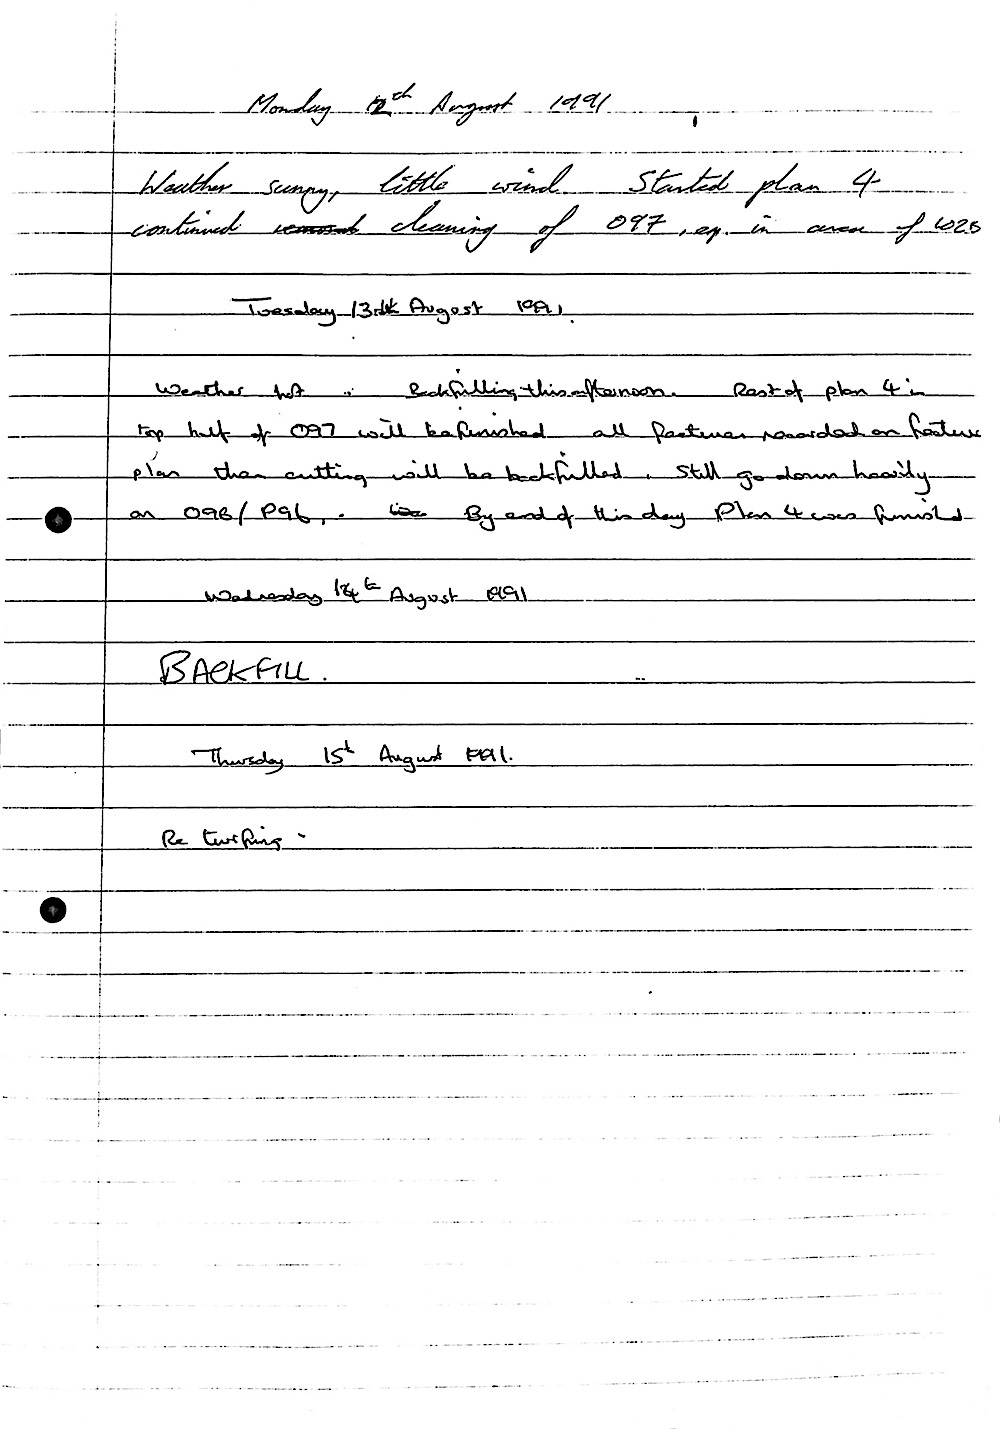 Monday 12th August 1991
Weather sunny, little wind. Started plan 4
continued cleaning of 097, esp. in area of
Tuesday 13th August 1991.
Weather hot .. Backfilling this afternoon. Rest of plan 4 in
top half of 097 will be finished all features recorded on feature
plan then cutting will be backfilled. Still go down heavily
on 098/P96, . By end of this day Plan 4 was finished
Wednesday 14th August 1991
BACKFILL.
Thursday 15th August 1991.
Re turfing -